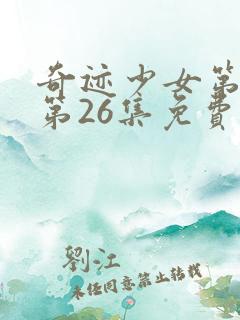 奇迹少女第
第26集免費
劉江
未经同意禁止转载